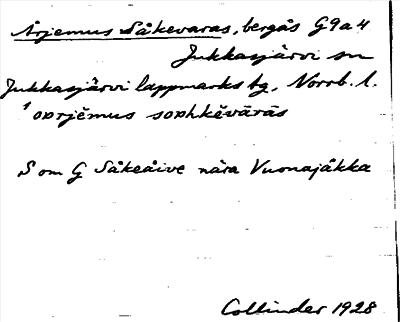 Årjemus Såkevaras, bergås G9a4
Jukkasjärvi sn
Jukkasjärvi lappmarks tg, Norrb. l.
S om G Såkeåive nära Vuonajåkka
Collinder 1928